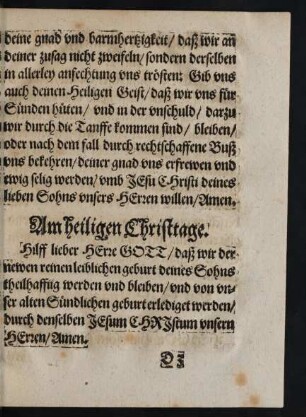 deine gnad vnd barmhertzigkeit/ daß wir an
deiner zusag nicht zweifeln/ sondern derselben
in allerley anfechtung vns trösten: Gib vns
auch deinen Heiligen Geist/ daß wir vns für
Sünden hüten/ vnd in der vnschuld/ darzu
wir durch die Tauffe kommen sind/ bleiben/
oder nach dem fall durch rechtschaffene Buß
vns bekehren/ deiner gnad vns erfrewen vnd
ewig selig werden/ vmb JEsu CHristi deines
lieben Sohns vnsers HErren willen/ Amen.
Am heiligen Christtage.
Hilff lieber HErre GOTT/ daß wir der
newen reinen leiblichen geburt deines Sohns
theilhafftig werden vnd bleiben/ vnd von vn-
ser alten Sündlichen geburt erlediget werden/
durch denselben JEsum CHRIstum vnsern
HErren/ Amen.